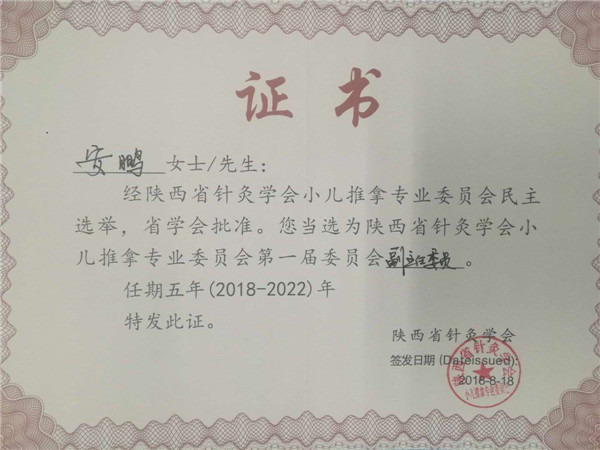 证书
安鹏 女士/先生：
经陕西省针灸学会小儿推拿专业委员会民主
选举，省学会批准。您当选为陕西省针灸学会小
儿推拿专业委员会第一届委员会副主任委员。
任期五年(2018-2022)年
特发此证。
陕西省针灸学会
签发日期(Dateissued):
2018-8-18
陕西省针灸学会
小儿推拿专业委员会